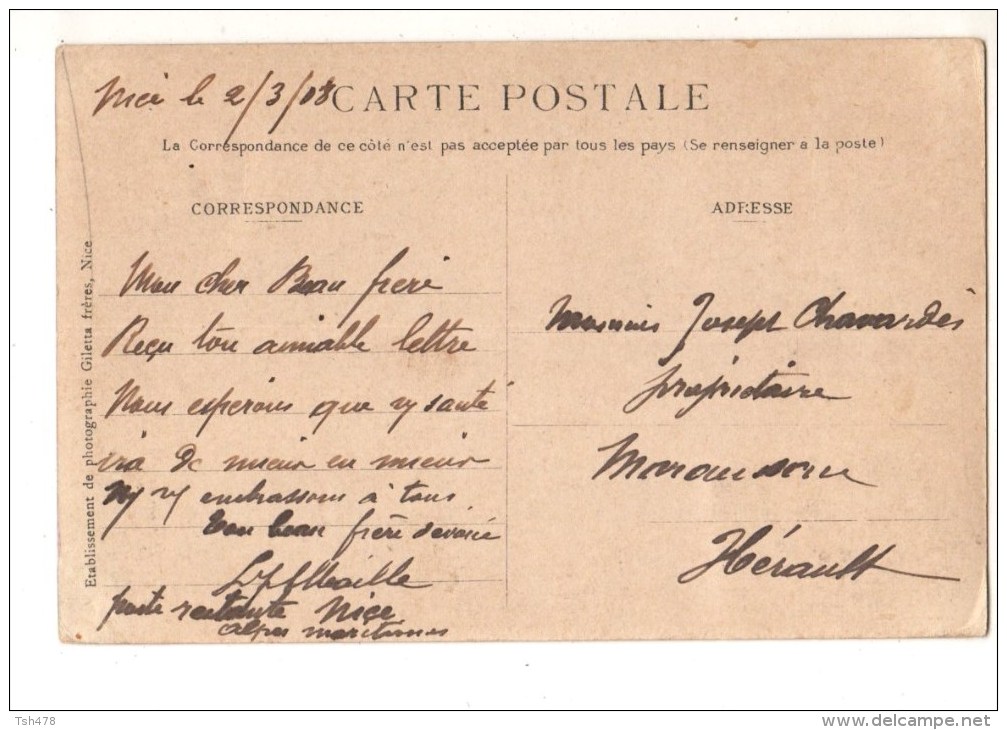 Nice le 2/3/08
CARTE POSTALE
La Correspondance de ce côté n'est pas acceptée par tous les pays (Se renseigner a la poste)
CORRESPONDANCE
ADRESSE
Etablissement de photographie Giletta frères, Nice
Mon cher Beau frère
Reçu ton aimable lettre
Nous espérons que ta santé
ira de mieux en mieux
embrassons à tous
Ton beau frère dévoué
poste restante Nice
Alpes maritimes
Monsieur Joseph Chavardès
propriétaire
Maraussan
Hérault
Tsh478
www.delcampe.net